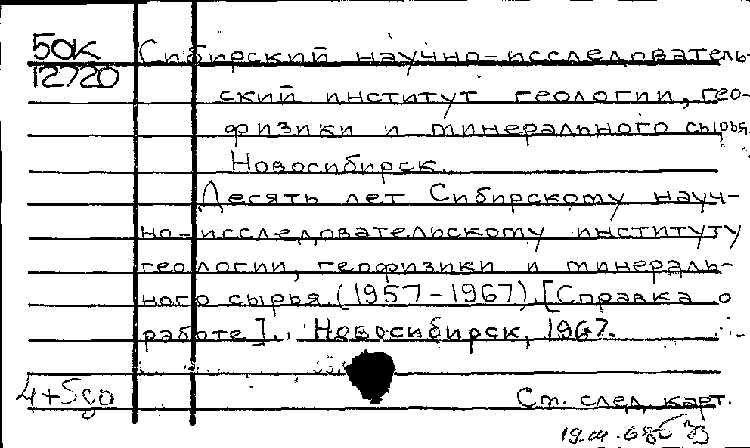 50К
12720
Сибирский научно-исследователь-
ский институт геологии, гео-
физики и минерального сырья
Новосибирск.
Десять лет Сибирскому науч-
но-исследовательскому институту
геологии, геофизики и минераль-
ного сырья (1957-1967). [Справка о
работе]. Новосибирск, 1967.
Ст. след. карт.